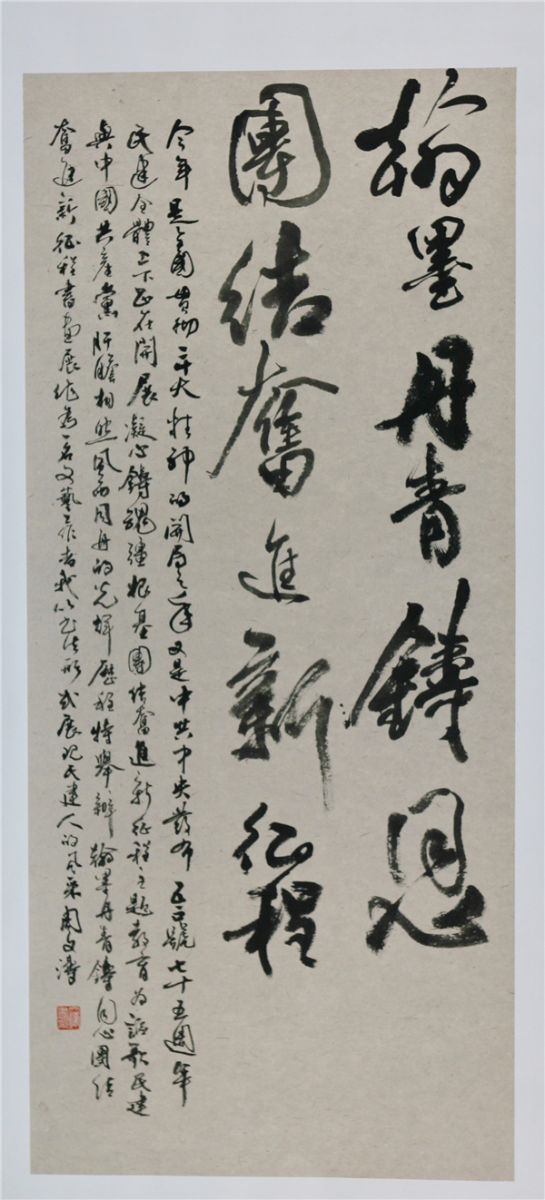 翰墨丹青鑄同心
團結奮進新征程
今年是全國貫彻二十大精神的開局之年又是中共中央發布五一號七十五週年
民建全體上下正在開展凝心鑄魂强根基團结奮進新征程主题教育为謳歌民建
與中國共產黨肝膽相照風雨同舟的光輝歷程特舉辦翰墨丹青鑄同心團结
奮進新征程書画展作为一名文藝工作者我以书法形式展现民建人的风采周文濤